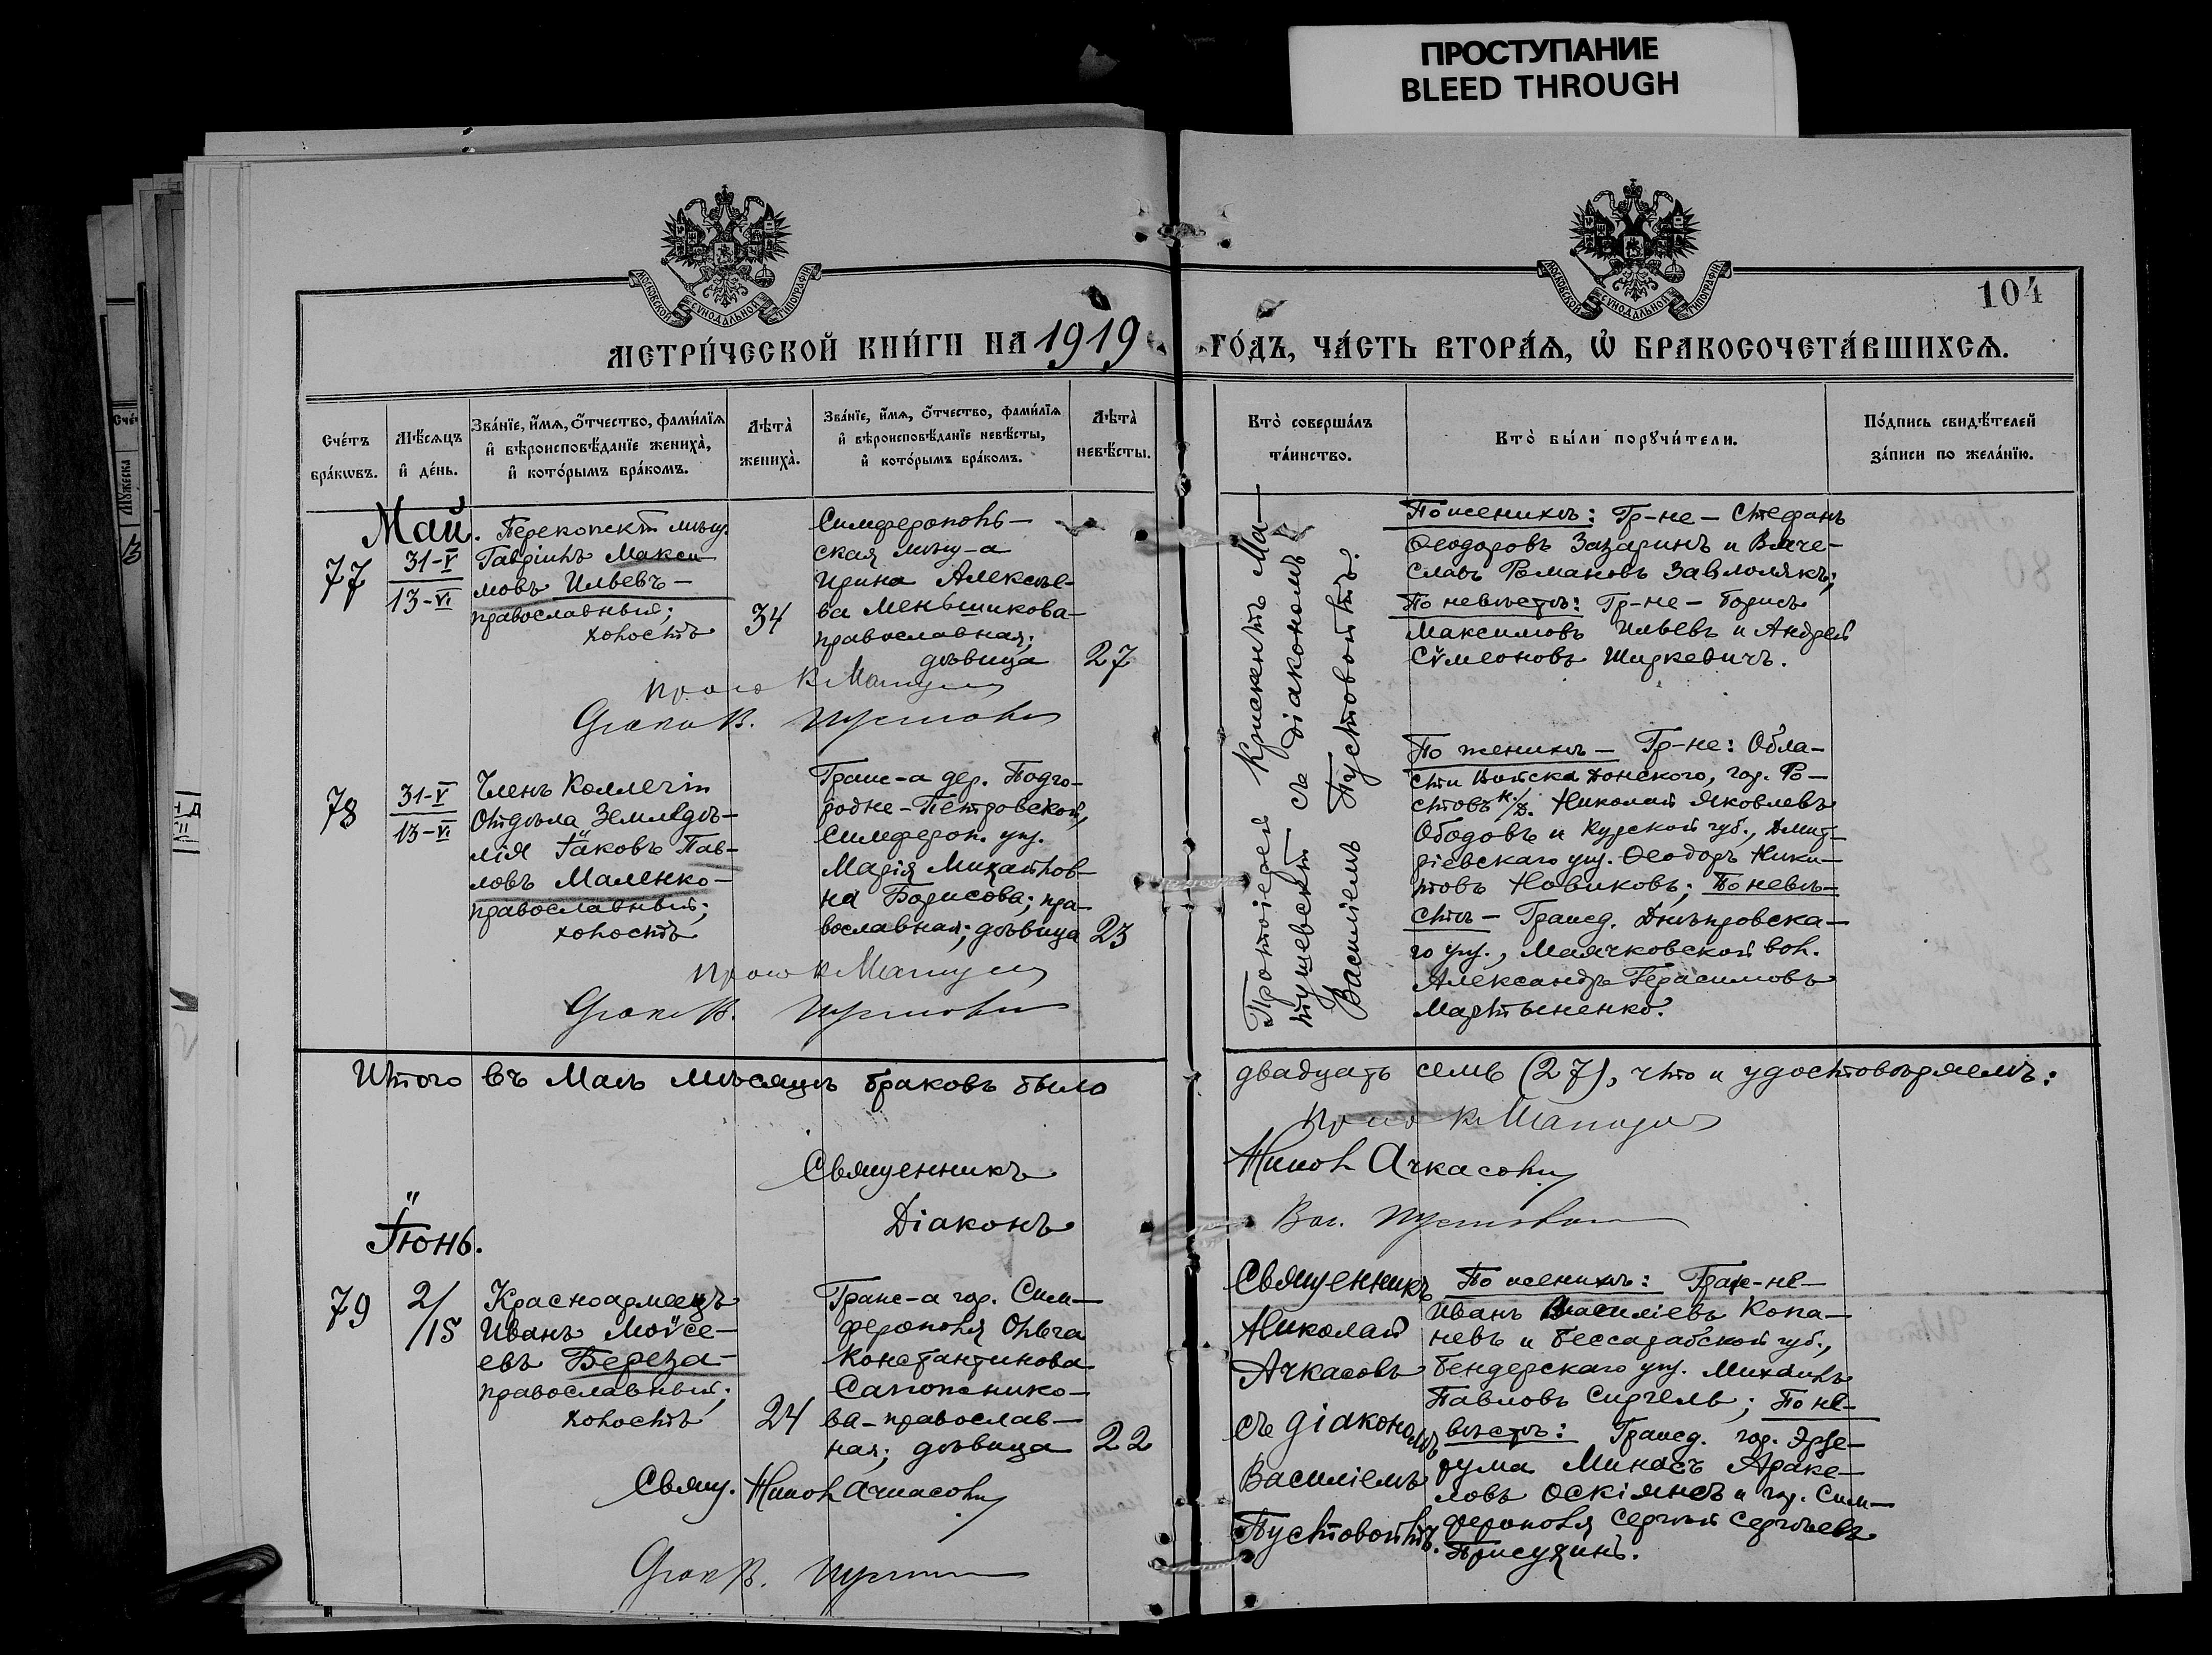 ПРОСТУПАНИЕ
BLEED THROUGH
МОСКОВСКОЙ СѴНОДАЛЬНОЙ ТИПОГРАФІИ
МОСКОВСКОЙ СѴНОДАЛЬНОЙ ТИПОГРАФІИ
104
МЕТРИ́ЧЕСКОЙ КНИ́ГИ НА 1919
ГО́ДЪ, ЧА́СТЬ ВТОРА́Ѧ, Ѡ БРАКОСОЧЕТА́ВШИХСѦ.
Сче́тъ бра́кѡвъ.
Мѣ́сѧцъ и де́нь.
Зва́нїе, и́мѧ, о́тчество, фами́лїѧ и вѣроисповѣ́данїе жениха̀, и кото́рымъ бра́комъ.
Лѣта̀ жениха̀.
Зва́нїе, и́мѧ, о́тчество, фами́лїѧ и вѣроисповѣ́данїе невѣ́сты, и кото́рымъ бра́комъ.
Лѣта̀ невѣ́сты.
Кто̀ соверша́лъ та́инство.
Кто̀ бы́ли порꙋчи́тели.
По́дпись свидѣ́телей за́писи по жела́нїю.
Май.
77
31-V
13-VI
Перекопскій мѣщ.
Гавріилъ Макси-
мовъ Ильевъ-
православный;
холостъ
34
Симферополь-
ская мѣщ-а
Ирина Алексѣе-
ва Меньшикова-
православная;
дѣвица
27
Протоіерей Крискентъ Ма-
тушевскій съ діакономъ
Василіемъ Пустовойтъ.
По женихѣ: Гр-не - Стефанъ
Ѳеодоровъ Базаринъ и Вяче-
славъ Романовъ Завмолякъ;
По невѣстѣ: Гр-не - Борисъ
Максимовъ Ильевъ и Андрей
Сѵмеоновъ Ширкевичъ.
78
31-V
13-VI
Членъ Коллегіи
Отдѣла Земледѣ-
лія Іаковъ Пав-
ловъ Маленко-
православный;
холостъ
Гражд-а дер. Подго-
родне-Петровской,
Симфероп. уѣз.
Марія Михайлов-
на Борисова; пра-
вославная; дѣвица
23
По женихѣ - Гр-не: Обла-
сти Войска Донского, гор. Ро-
стовъ н/Д. Николай Яковлевъ
Ободовъ и Курской губ., Дмит-
ріевскаго уѣз. Ѳеодоръ Ники-
товъ Новиковъ; По невѣ-
стѣ - Гражд. Днѣпровска-
го уѣз., Маячковской вол.
Александръ Герасимовъ
Мартыненко.
Итого въ Маѣ мѣсяцѣ браковъ было
двадцать семь (27), что и удостовѣряемъ:
Священникъ
Николай Ачкасовъ
Діаконъ
Вас. Пустовойтъ
Іюнь.
79
2/15
Красноармеецъ
Иванъ Моѵсе-
евъ Береза-
православный;
холостъ
24
Граж-а гор. Сим-
ферополя Ольга
Константинова
Сапожнико-
ва - православ-
ная; дѣвица
22
Священникъ
Николай
Ачкасовъ
съ діакономъ
Василіемъ
Пустовойтъ.
По женихѣ: Граж-не-
Иванъ Василіевъ Копа-
невъ и Бессарабской губ.,
Бендерскаго уѣз. Михаилъ
Павловъ Сиргель; По не-
вѣстѣ: Гражд. гор. Эрзе-
рума Минасъ Араке-
ловъ Оскіянсъ и гор. Сим-
ферополя Сергѣй Сергѣевъ
Присухинъ.
Свящ. Николай Ачкасовъ